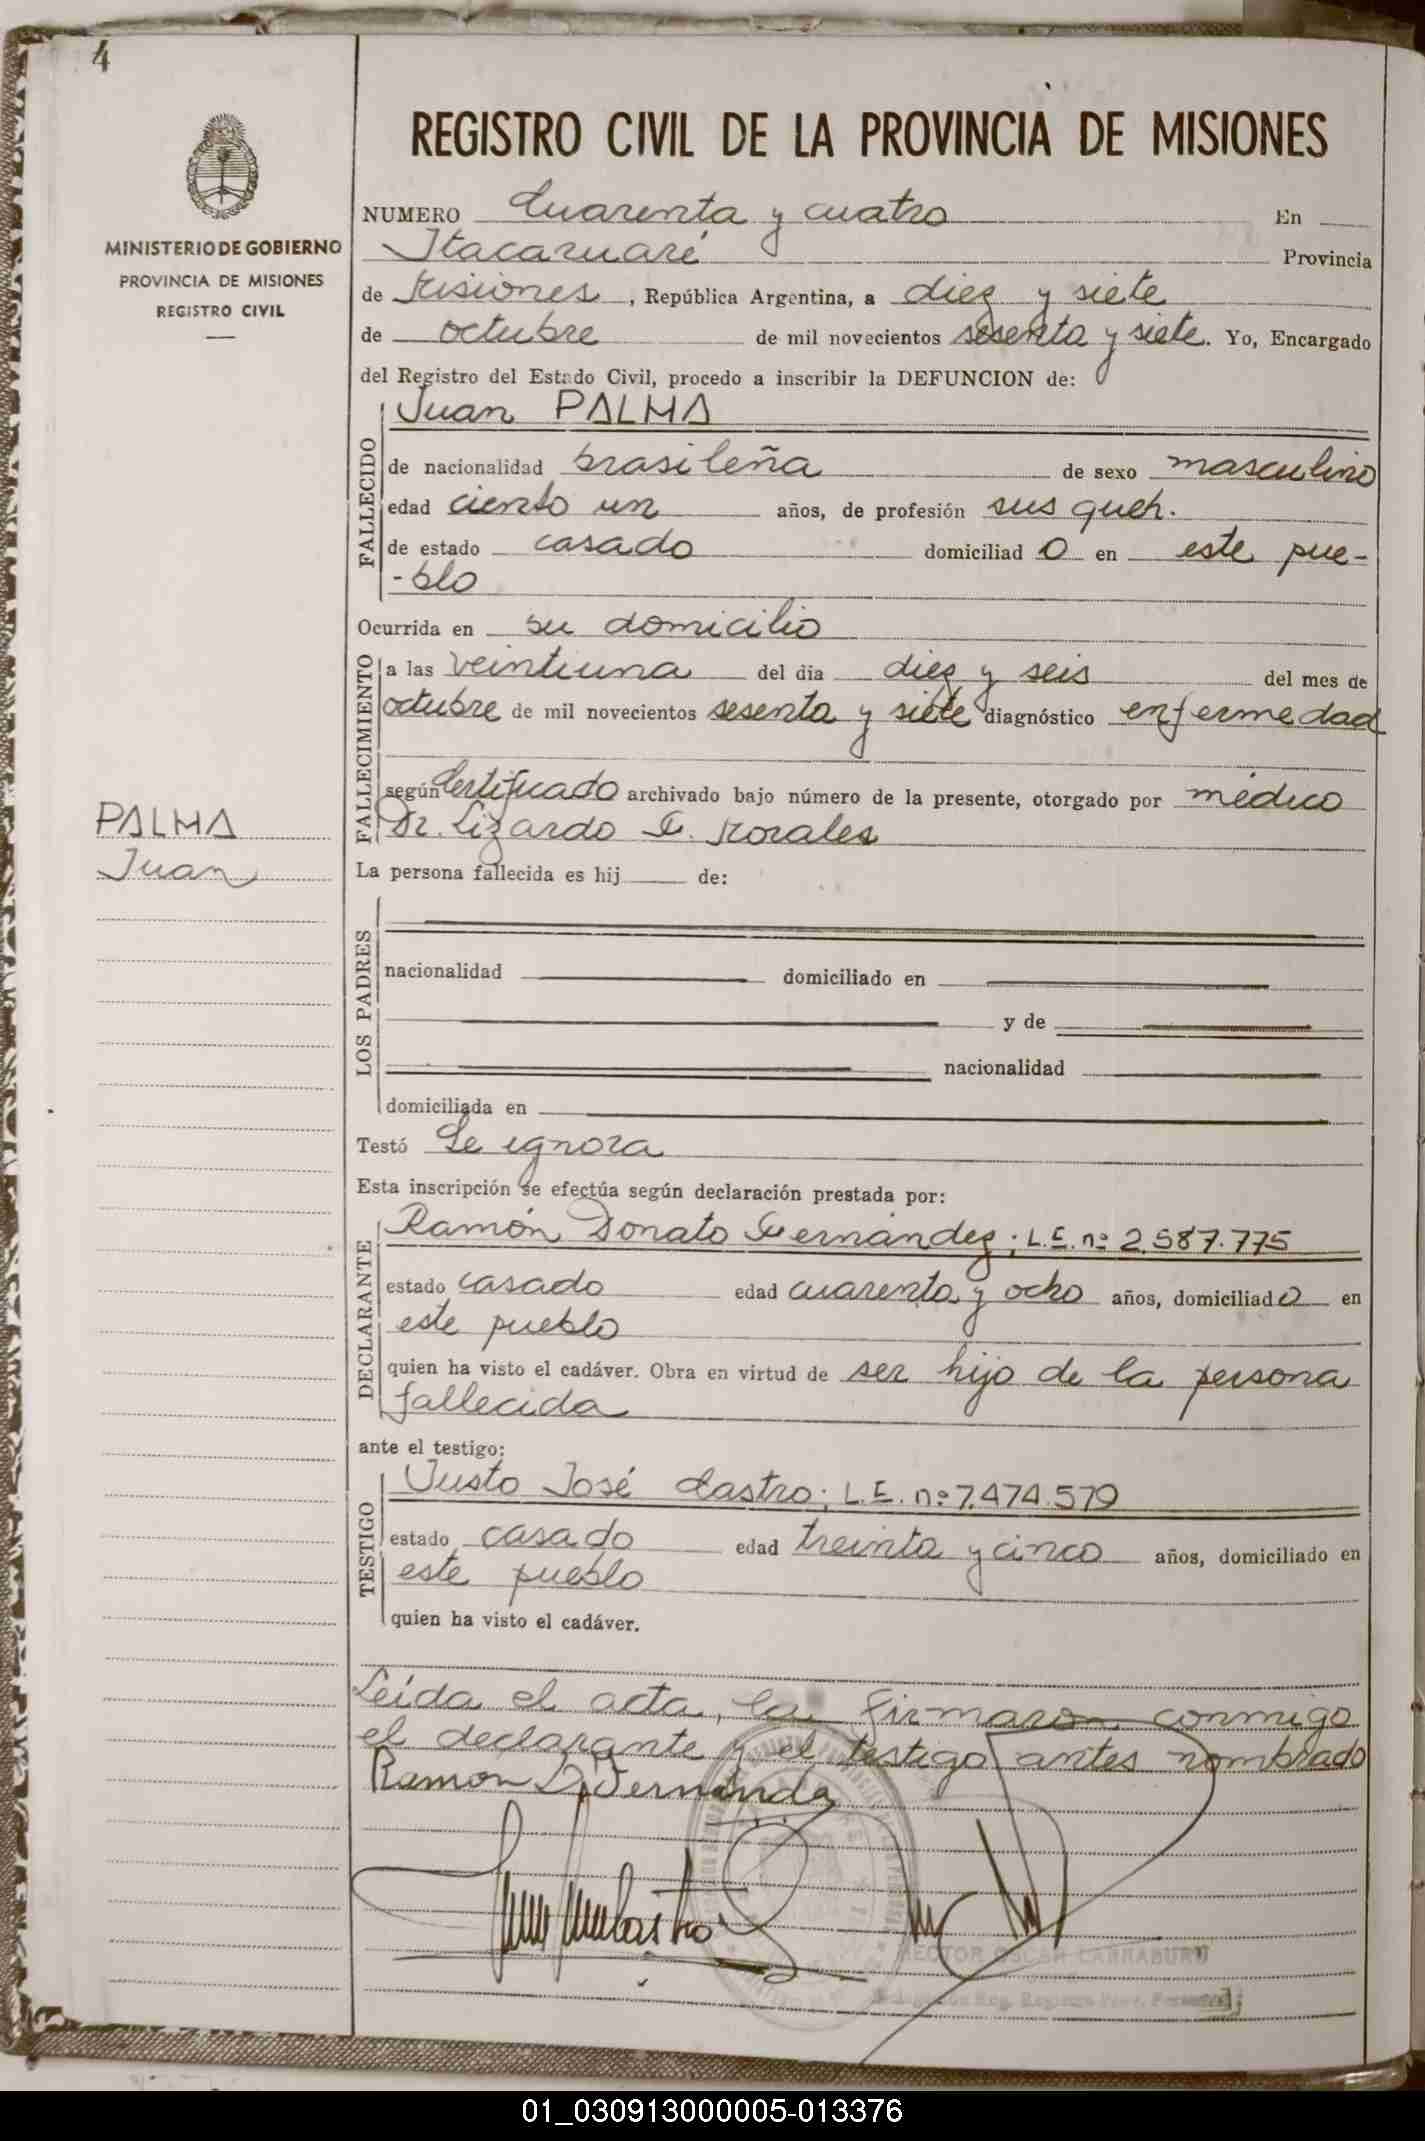 4
REGISTRO CIVIL DE LA PROVINCIA DE MISIONES
MINISTERIO DE GOBIERNO
PROVINCIA DE MISIONES
REGISTRO CIVIL
NUMERO Cuarenta y cuatro En
Itacaruaré Provincia
de Misiones, República Argentina, a diez y siete
de octubre de mil novecientos sesenta y siete. Yo, Encargado
del Registro del Estado Civil, procedo a inscribir la DEFUNCION de:
FALLECIDO
Juan PALMA
de nacionalidad brasileña de sexo masculino
edad ciento un años, de profesión sus queh.
de estado casado domiciliado en este pue-
-blo
Ocurrida en su domicilio
FALLECIMIENTO
a las veintiuna del dia diez y seis del mes de
octubre de mil novecientos sesenta y siete diagnóstico enfermedad
según Certificado archivado bajo número de la presente, otorgado por médico
Dr. Lizardo F. Morales
PALMA
Juan
La persona fallecida es hij de:
LOS PADRES
nacionalidad domiciliado en
y de
nacionalidad
domiciliada en
Testó Se ignora
Esta inscripción se efectúa según declaración prestada por:
DECLARANTE
Ramón Donato Fernández; L.E. nº 2.587.775
estado casado edad cuarenta y ocho años, domiciliado en
este pueblo
quien ha visto el cadáver. Obra en virtud de ser hijo de la persona
fallecida
ante el testigo:
TESTIGO
Justo José Castro; L.E. nº 7.474.579
estado casado edad treinta y cinco años, domiciliado en
este pueblo
quien ha visto el cadáver.
Leída el acta, la firmaron conmigo
el declarante y el testigo antes nombrado
Ramon D. Fernández
HECTOR OSCAR LARRABURU
01_030913000005-013376